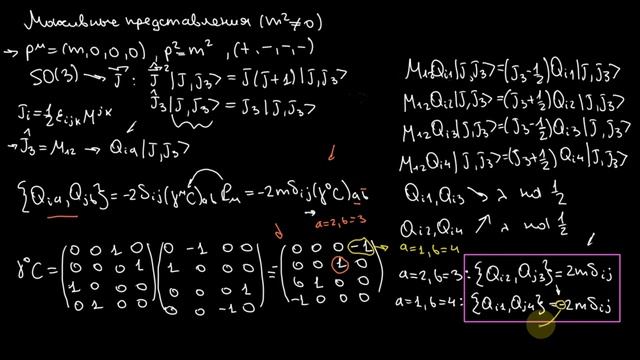 Массивные представления (m²≠0)
→ p^μ = (m,0,0,0), p² = m², (+,-,-,-)
SO(3) → J⃗ : Ĵ⃗²|J,J₃> = J(J+1)|J,J₃>
Ĵ₃|J,J₃> = J₃|J,J₃>
J_i = ½ε_ijk M^jk
→ Ĵ₃ = M₁₂ → Q_ia|J,J₃>
{Q_ia, Q_jb} = -2δ_ij(γ^μC)_ab P_μ = -2mδ_ij(γ⁰C)_ab
a=2, b=3
γ⁰C = (0 0 1 0; 0 0 0 1; 1 0 0 0; 0 1 0 0)(0 -1 0 0; 1 0 0 0; 0 0 0 1; 0 0 -1 0) = (0 0 0 -1; 0 0 1 0; 0 1 0 0; -1 0 0 0) → a=1, b=4
M₁₂Q_i1|J,J₃> = (J₃-½)Q_i1|J,J₃>
M₁₂Q_i2|J,J₃> = (J₃+½)Q_i2|J,J₃>
M₁₂Q_i3|J,J₃> = (J₃-½)Q_i3|J,J₃>
M₁₂Q_i4|J,J₃> = (J₃+½)Q_i4|J,J₃>
Q_i1, Q_i3 ↘ λ на ½
Q_i2, Q_i4 ↗ λ на ½
a=2, b=3: {Q_i2, Q_j3} = 2mδ_ij
a=1, b=4: {Q_i1, Q_j4} = -2mδ_ij